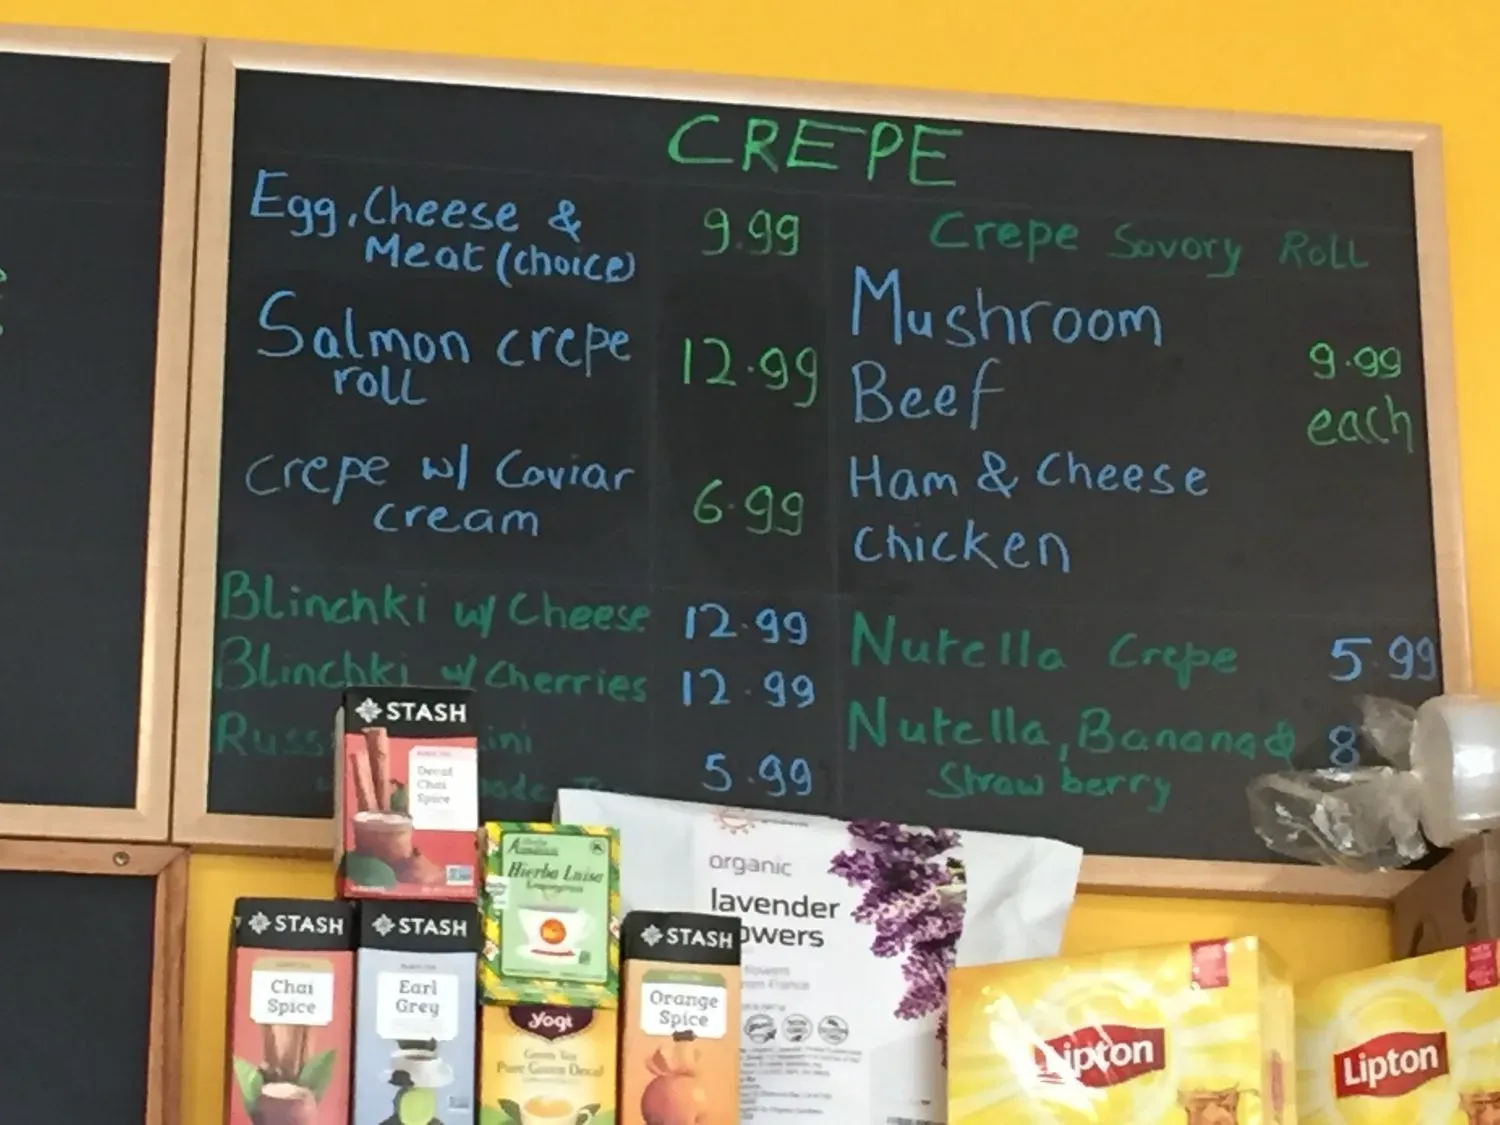 CREPE
Egg, Cheese &
Meat (choice)
9.99
Salmon crepe
roll
12.99
Crepe w/ Caviar
cream
6.99
Blinchki w/ Cheese
12.99
Blinchki w/ Cherries
12.99
5.99
Crepe Savory Roll
Mushroom
Beef
Ham & Cheese
Chicken
9.99
each
Nutella Crepe
5.99
Nutella, Banana &
Strawberry
8
STASH
Decaf
Chai
Spice
STASH
Chai
Spice
STASH
Earl
Grey
Hierba Luisa
Lemongrass
yogi
Green Tea
Pure Green Decaf
STASH
Orange
Spice
organic
lavender
Lipton
Lipton